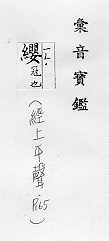 彙音寶鑑
纓 冠也
(經上平聲. P.65)